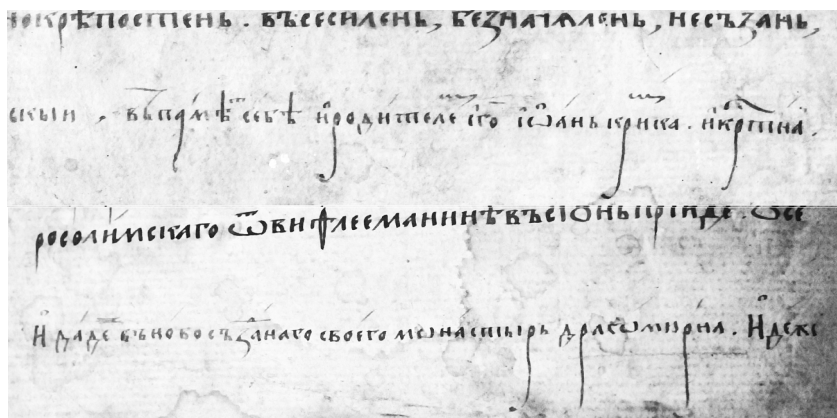 нокрѣпостень. въсесилень, безначѧлень, несъзань,
скыи, въпамѣⷮ себѣ и родителе своⷢ҇ іѡань крика. и крⷭ҇тина.
росолимскаго ѿ виѳлееманинѣ въсіѡнь прїиде.
И даде въ новосъзⷣанаго своего мѡнастырь драгѡмирна. И